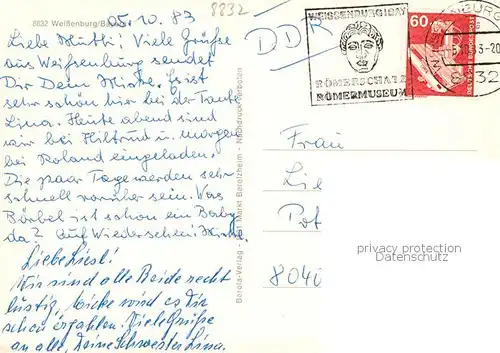 8832 Weißenburg/Bayern
05.10.83
8832
Liebe Mutti! Viele Grüße
aus Weißenburg sendet
Dir Dein Mirko. Es ist
sehr schön hier bei der Tante
Lina. Heute abend sind
wir bei Hiltrud u. morgen
bei Roland eingeladen.
Die paar Tage werden sehr
schnell vorüber sein. Was
Bärbel ist schon ein Baby
da? Auf Wiedersehen! Mirko.
Liebe Liesl!
Wir sind alle Beide recht
lustig, wird es Dir
schon erzählen. Viele Grüße
an alle, Deine Schwester Lina.
Barola-Verlag Markt Berolzheim - Nachdruck verboten
DDR
WEISSENBURG I BAY
RÖMERSCHATZ
RÖMERMUSEUM
60
DEUTSCHE BUNDESPOST
Frau
Lie
Pot
8040
privacy protection
Datenschutz